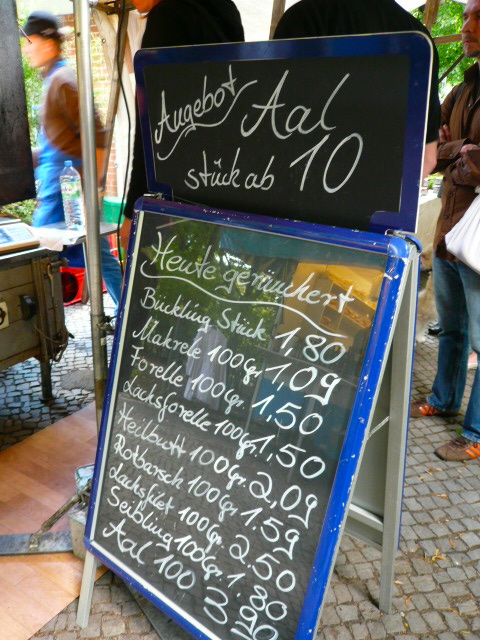 Angebot Aal
stück ab 10
Heute geräuchert
Bückling Stück 1,80
Makrele 100gr. 1,09
Forelle 100gr. 1,50
Lachsforelle 100gr. 1,50
Heilbutt 100gr. 2,09
Rotbarsch 100gr. 1,59
Lachsfilet 100gr. 2.50
Seibling 100gr. 1.80
Aal 100 3,90